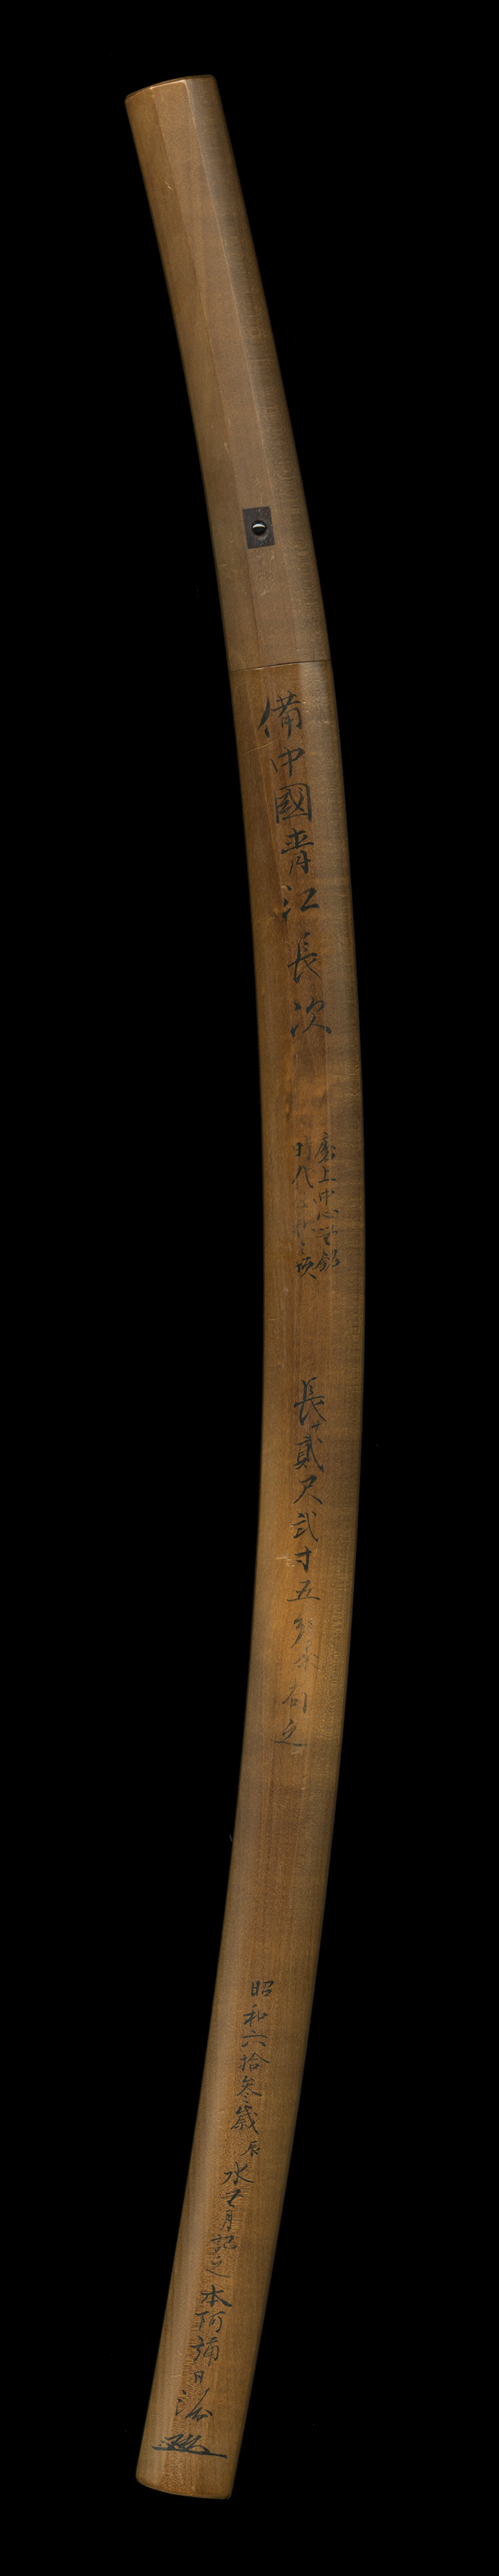 備中國青江長次
磨上中心無銘
時代
頃
長サ貳尺弐寸五分余有之
昭和六拾参歳辰水無月記之 本阿彌日洲